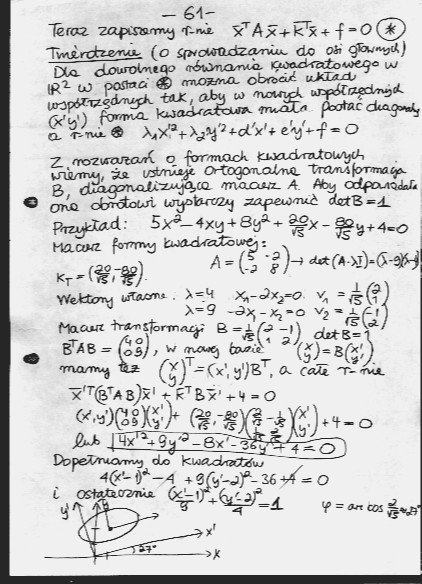 -61-
Teraz zapiszemy r-nie x̄ᵀAx̄ + k̄ᵀx̄ + f = 0 (*)
Twierdzenie (o sprowadzaniu do osi głównych)
Dla dowolnego równania kwadratowego w
ℝ² w postaci (*) można obrócić układ
współrzędnych tak, aby w nowych współrzędnych
(x'y') forma kwadratowa miała postać diagonalną
a r-nie (*) λ₁x'² + λ₂y'² + d'x' + e'y' + f = 0
Z rozważań o formach kwadratowych
wiemy, że istnieje ortogonalna transformacja
B, diagonalizująca macierz A. Aby odpowiadała
ona obrotowi wystarczy zapewnić det B = 1
Przykład: 5x² - 4xy + 8y² + 20/√5 x - 80/√5 y + 4 = 0
Macierz formy kwadratowej:
A = (5 -2; -2 8) → det(A-λI) = (λ-9)(λ-4)
K_T = (20/√5, -80/√5).
Wektory własne: λ=4 x₁ - 2x₂ = 0 v₁ = 1/√5 (2; 1)
λ=9 -2x₁ - x₂ = 0 v₂ = 1/√5 (-1; 2)
Macierz transformacji B = 1/√5 (2 -1; 1 2) det B = 1
BᵀAB = (4 0; 0 9), w nowej bazie (x; y) = B(x'; y')
mamy też (x; y)ᵀ = (x', y')Bᵀ, a całe r-nie
x̄'ᵀ(BᵀAB)x̄' + k̄ᵀBx̄' + 4 = 0
(x', y')(4 0; 0 9)(x'; y') + (20/√5, -80/√5)(2/√5 -1/√5; 1/√5 2/√5)(x'; y') + 4 = 0
lub 4x'² + 9y'² - 8x' - 36y' + 4 = 0
Dopełniamy do kwadratów
4(x'-1)² - 4 + 9(y'-2)² - 36 + 4 = 0
i ostatecznie (x'-1)²/9 + (y'-2)²/4 = 1 φ = arc cos 2/√5 ≈ 27°
y' y
x'
27°
x